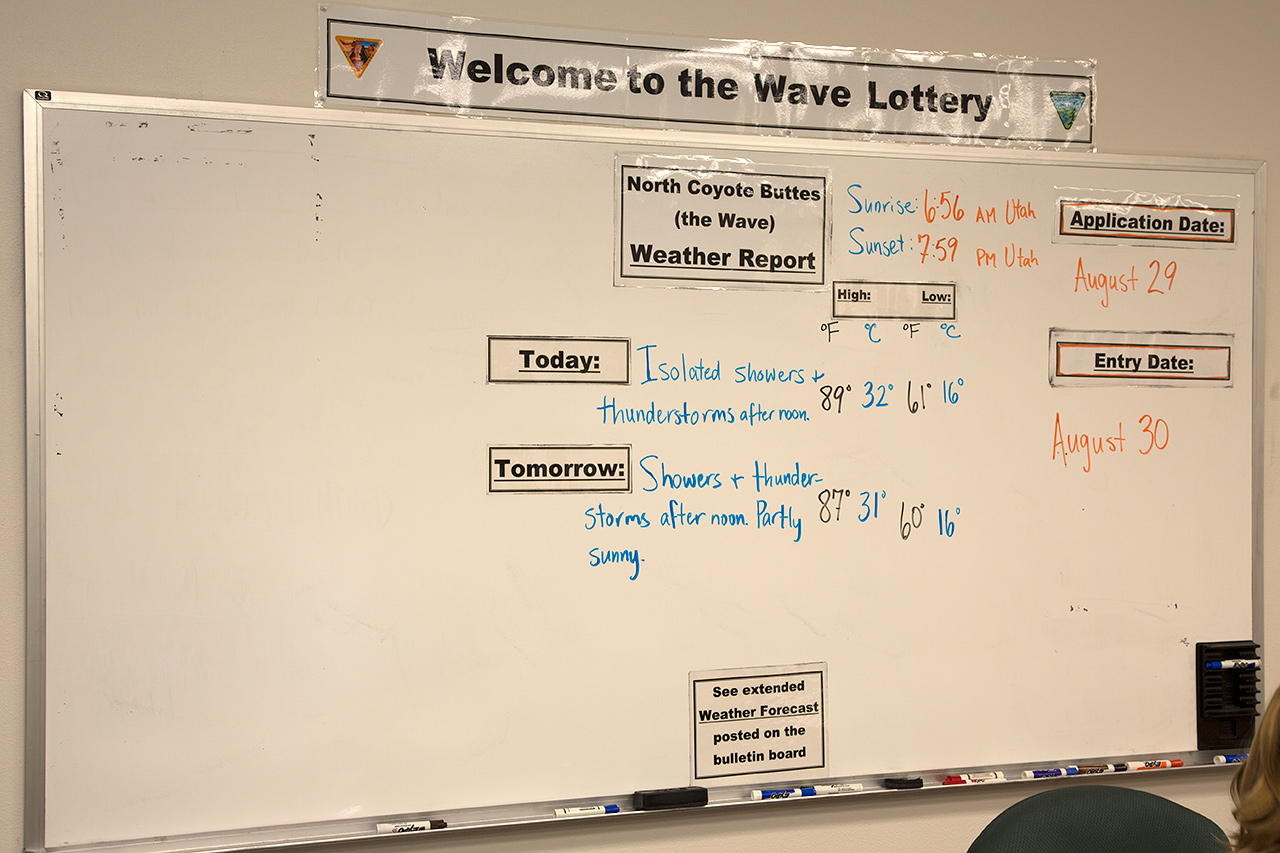 Welcome to the Wave Lottery
North Coyote Buttes
(the Wave)
Weather Report
Sunrise: 6:56 AM Utah
Sunset: 7:59 PM Utah
Application Date:
August 29
High: Low:
°F °C °F °C
Entry Date:
August 30
Today: Isolated showers +
thunderstorms after noon. 89° 32° 61° 16°
Tomorrow: Showers + thunder-
storms after noon. Partly 87° 31° 60° 16°
sunny.
See extended
Weather Forecast
posted on the
bulletin board